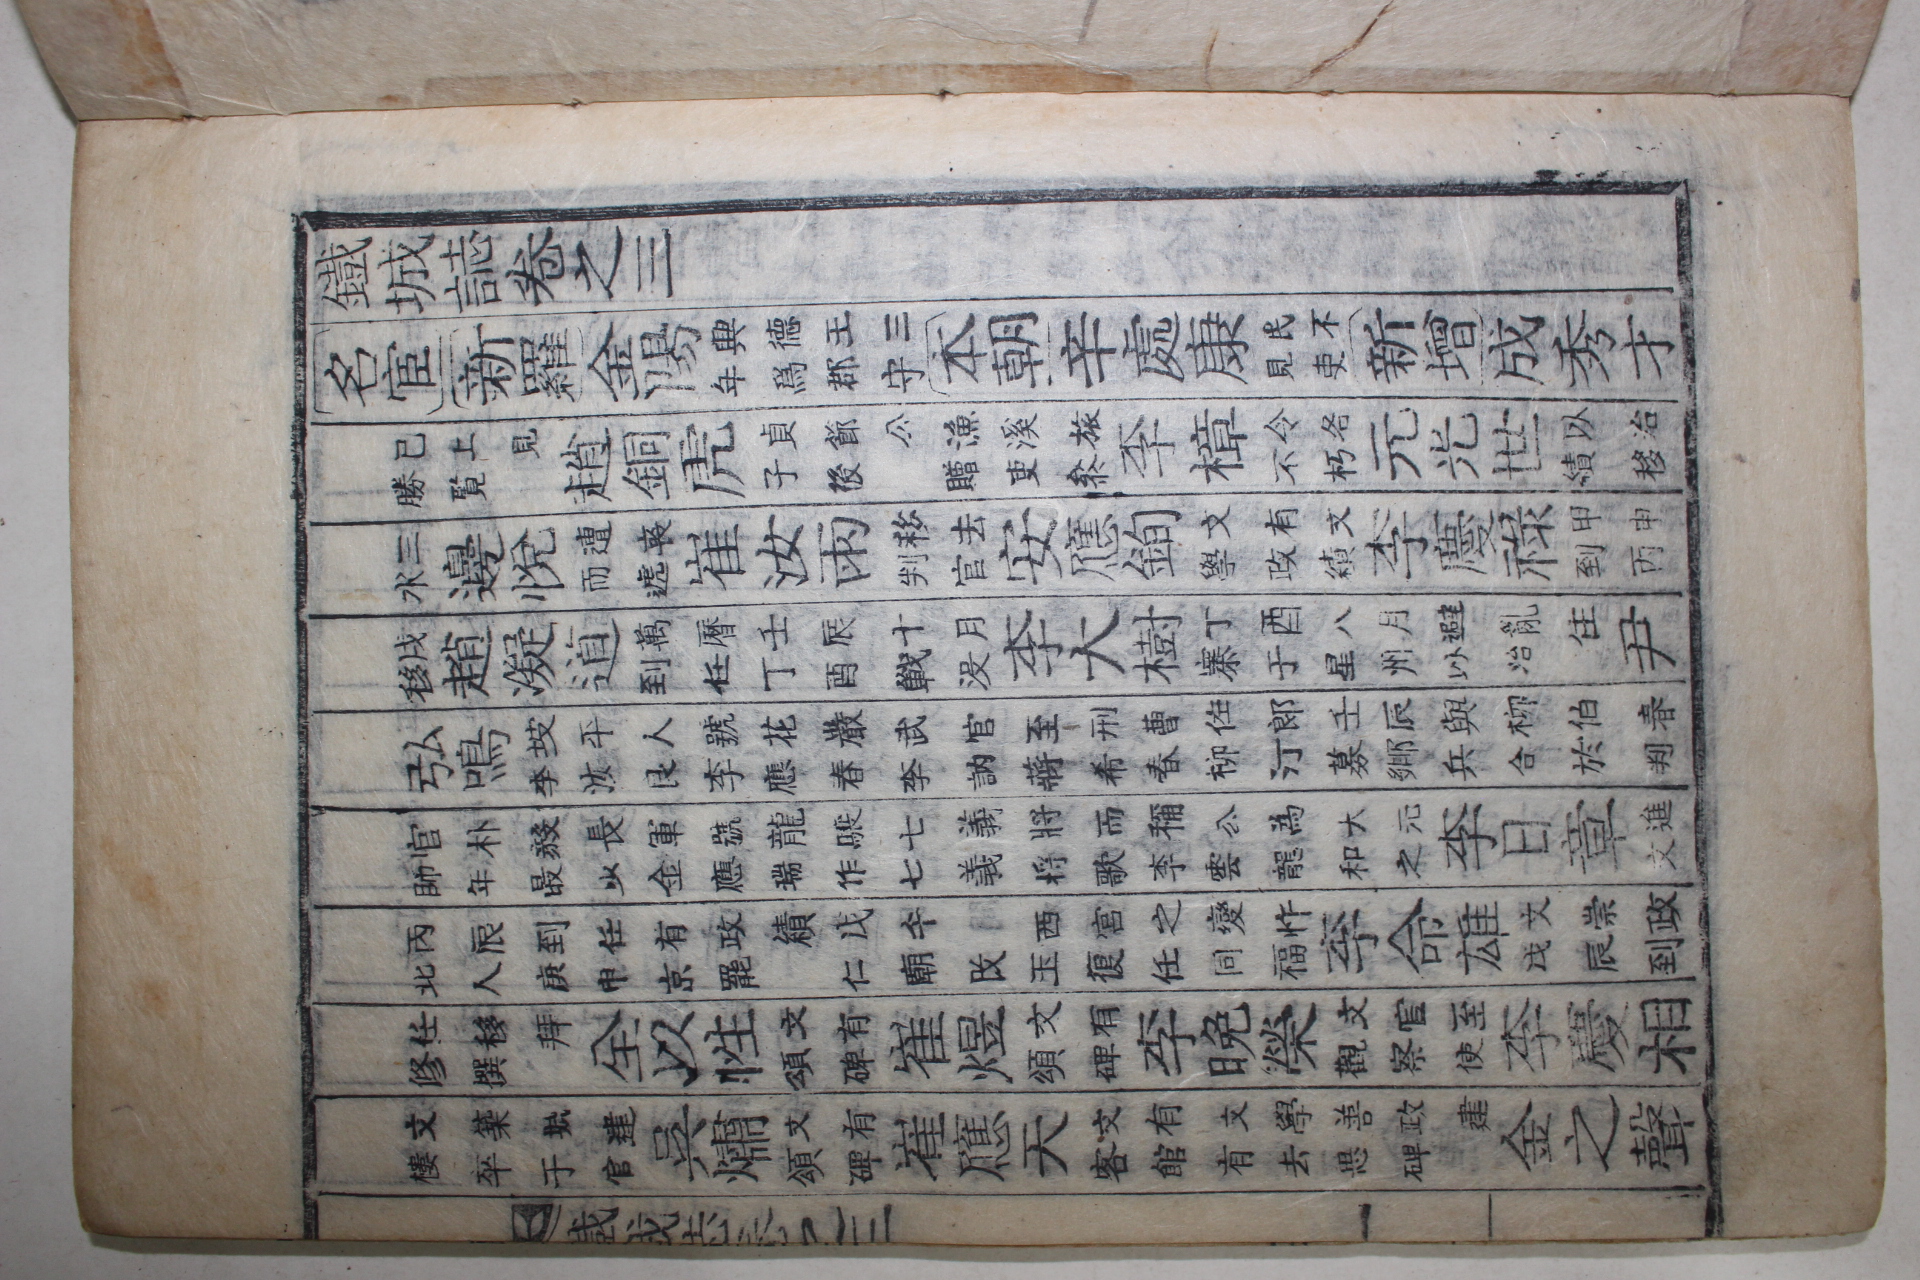 鐵城誌卷之三
名宦 新羅 金陽 興德王三年爲郡守 本朝 辛處康 民不見吏 新增 成秀才
已上見勝覽 趙銅虎 貞節公漁溪旅子後贈吏叅 李樟 令名不朽 元光世 以治績移
三水 邊悅 遭喪而遞 崔汝雨 移去判官 安應鉤 文有文學政績 李慶祿 甲申到丙
戌移 趙凝道 萬曆壬辰十月到任丁酉戰沒 李大樹 丁酉八月避亂住寨于星州以治 尹
弘鳴 坡平人號花巖武官至刑曹佐郎壬辰與柳伯春李汝良李應春李訥蔣希春柳汀募鄕兵合於判
官朴毅長軍號龍驤七義將而稱公爲大元帥年最少金應瑞作七義將歌李雲龍和之 李日章 文進
丙辰到任有政績戊午西宮之變忤北人庚申京罷仁廟改玉復任同福 李命雄 文崇政戊辰到
任移拜修撰 全以性 文有頌碑 崔煜 文有頌碑 李晩榮 文官至觀察使 李慶相
文築城建樓卒于官 吳𤐯 文有頌碑 崔應天 文有文學善政建客館有去思碑 金之聲
鐵城誌卷之三
一